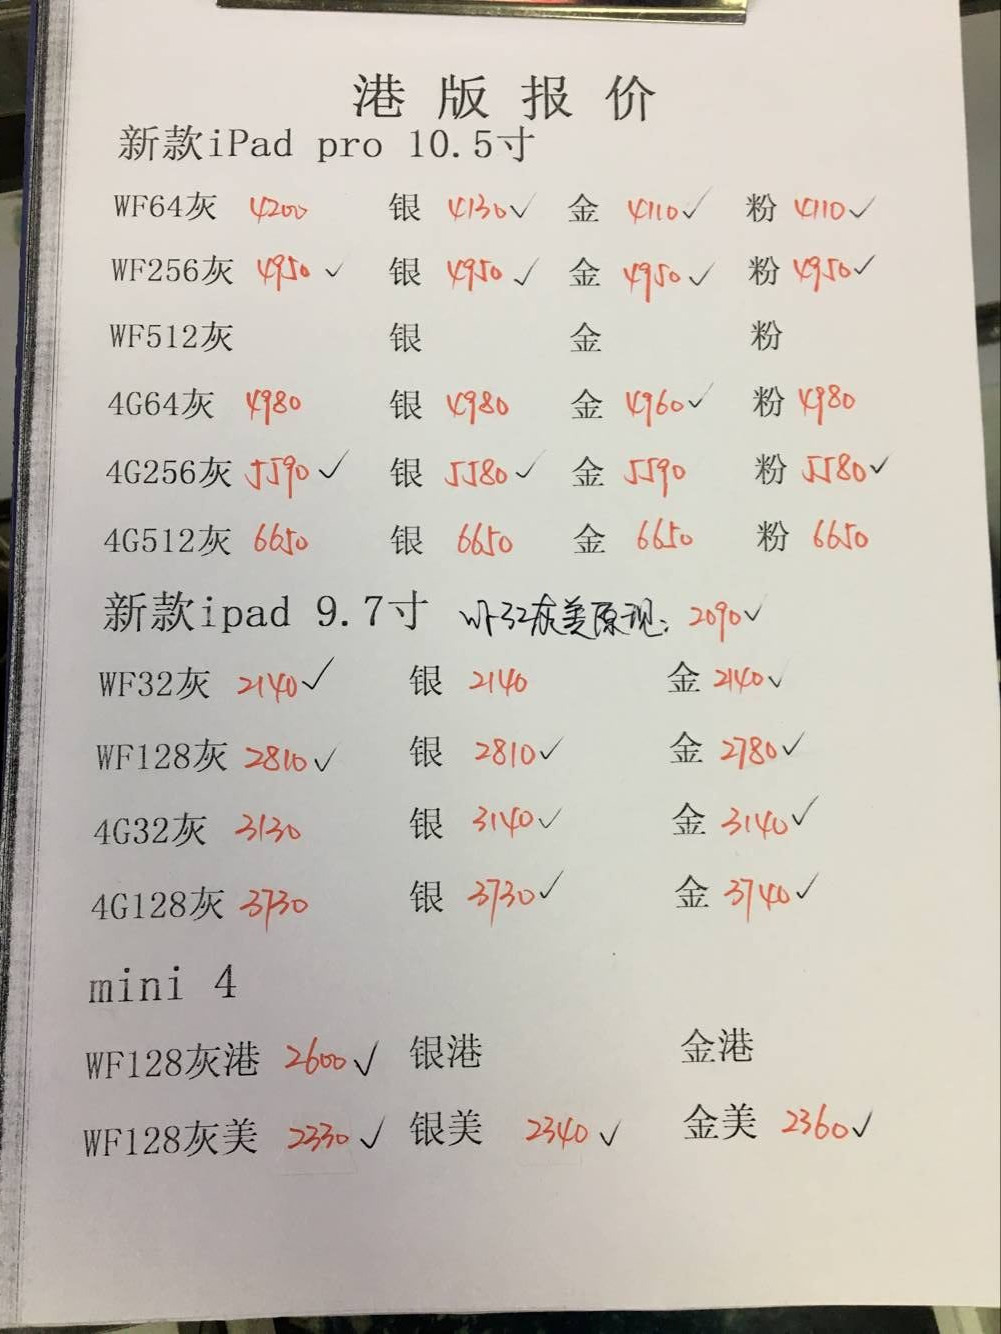 港版报价
新款iPad pro 10.5寸
WF64灰 4200 银 4130✓ 金 4110✓ 粉 4110✓
WF256灰 4950 ✓ 银 4950 ✓ 金 4950 ✓ 粉 4950✓
WF512灰 银 金 粉
4G64灰 4980 银 4980 金 4960✓ 粉 4980
4G256灰 5590 ✓ 银 5580✓ 金 5590 粉 5580✓
4G512灰 6650 银 6650 金 6650 粉 6650
新款ipad 9.7寸 WF32灰美原现: 2090✓
WF32灰 2140✓ 银 2140 金 2140✓
WF128灰 2810✓ 银 2810✓ 金 2780✓
4G32灰 3130 银 3140✓ 金 3140✓
4G128灰 3730 银 3730✓ 金 3740✓
mini 4
WF128灰港 2600✓ 银港 金港
WF128灰美 2330 ✓ 银美 2340 ✓ 金美 2360✓